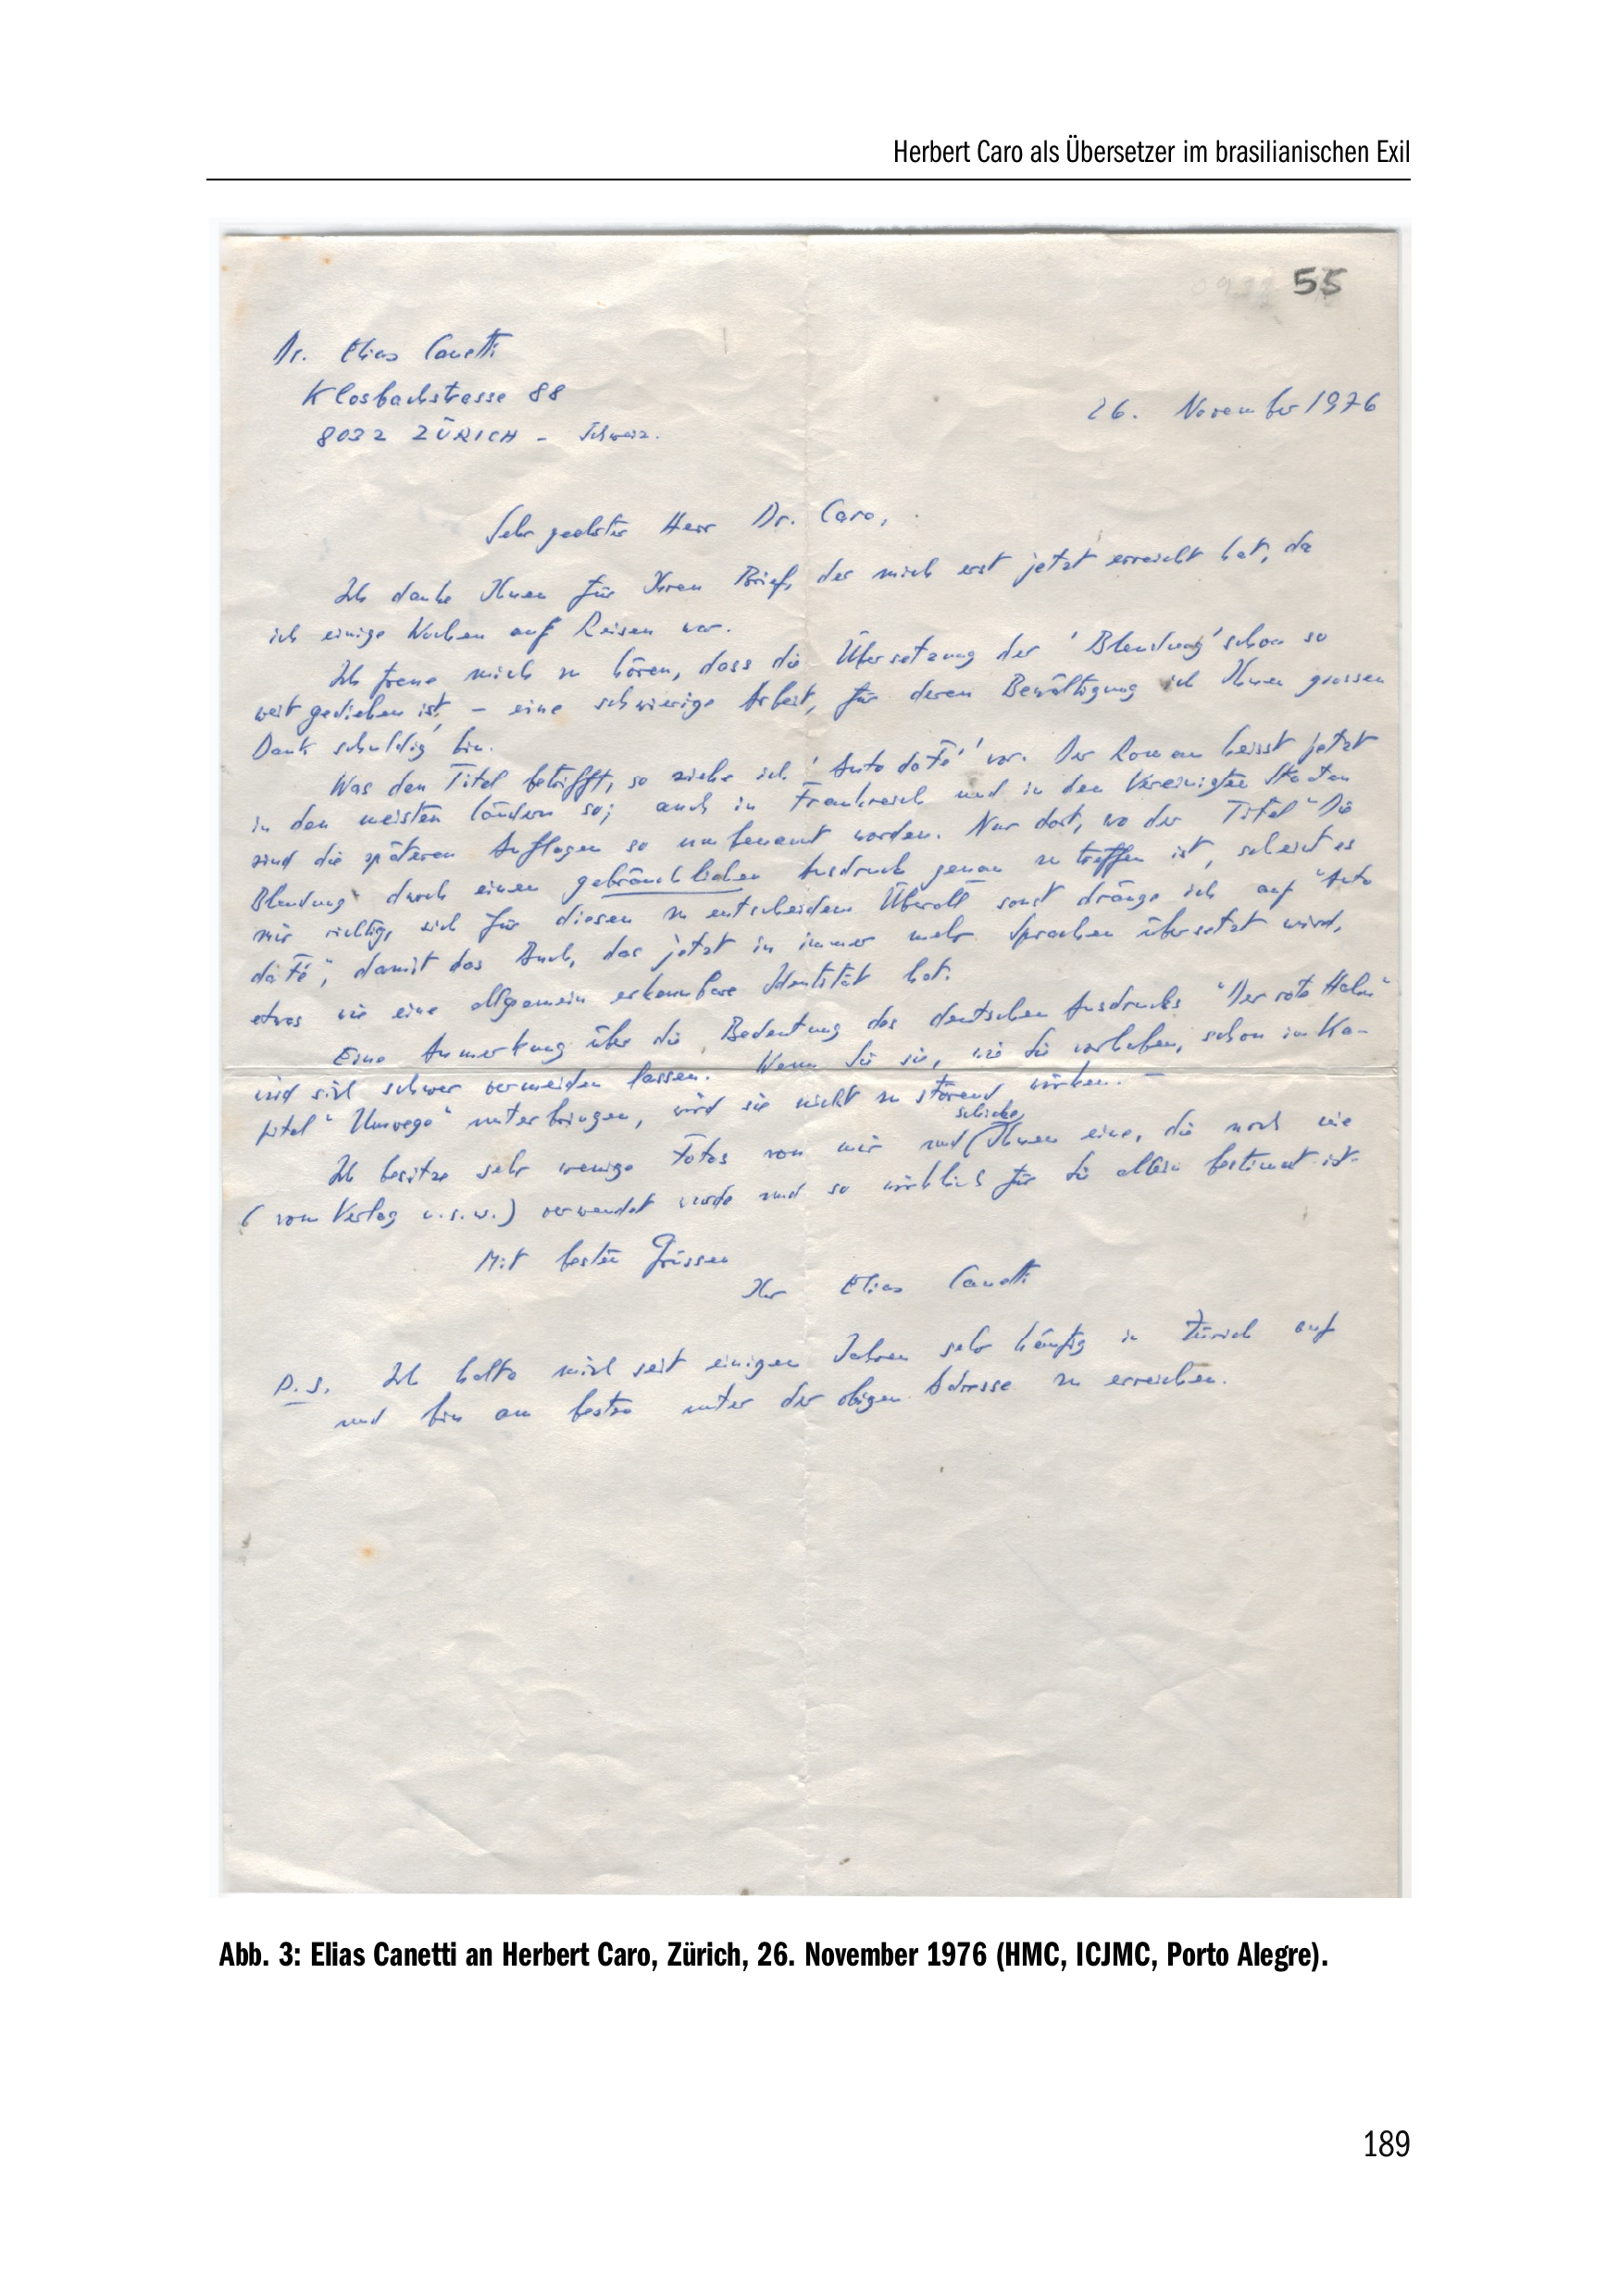 Herbert Caro als Übersetzer im brasilianischen Exil
55
Dr. Elias Canetti
Klosbachstrasse 88
8032 ZÜRICH - Schweiz.
26. November 1976
Sehr geehrter Herr Dr. Caro,
Ich danke Ihnen für Ihren Brief, der mich erst jetzt erreicht hat, da
ich einige Wochen auf Reisen war.
Ich freue mich zu hören, dass die Übersetzung der 'Blendung' schon so
weit gediehen ist, - eine schwierige Arbeit, für deren Bewältigung ich Ihnen grossen
Dank schuldig bin.
Was den Titel betrifft, so ziehe ich 'Auto da Fé' vor. Der Roman heisst jetzt
in den meisten Ländern so; auch in Frankreich und in den Vereinigten Staaten
sind die späteren Auflagen so umbenannt worden. Nur dort, wo der Titel "Die
Blendung" durch einen gebräuchlichen Ausdruck genau zu treffen ist, scheint es
mir richtig, sich für diesen zu entscheiden. Überall sonst dränge ich auf "Auto
da Fé", damit das Buch, das jetzt in immer mehr Sprachen übersetzt wird,
etwas wie eine allgemein erkennbare Identität hat.
Eine Anmerkung über die Bedeutung des deutschen Ausdrucks "Der rote Hahn"
wird sich schwer vermeiden lassen. Wenn Sie sie, wie Sie vorhaben, schon im Ka-
pitel "Umwege" unterbringen, wird sie nicht zu störend wirken. -
Ich besitze sehr wenige Fotos von mir und schicke Ihnen eine, die noch nie
(vom Verlag u.s.w.) verwendet wurde und so wirklich für Sie allein bestimmt ist.
Mit besten Grüssen
Ihr Elias Canetti
P.S. Ich halte mich seit einigen Jahren sehr häufig in Zürich auf
und bin am besten unter der obigen Adresse zu erreichen.
Abb. 3: Elias Canetti an Herbert Caro, Zürich, 26. November 1976 (HMC, ICJMC, Porto Alegre).
189